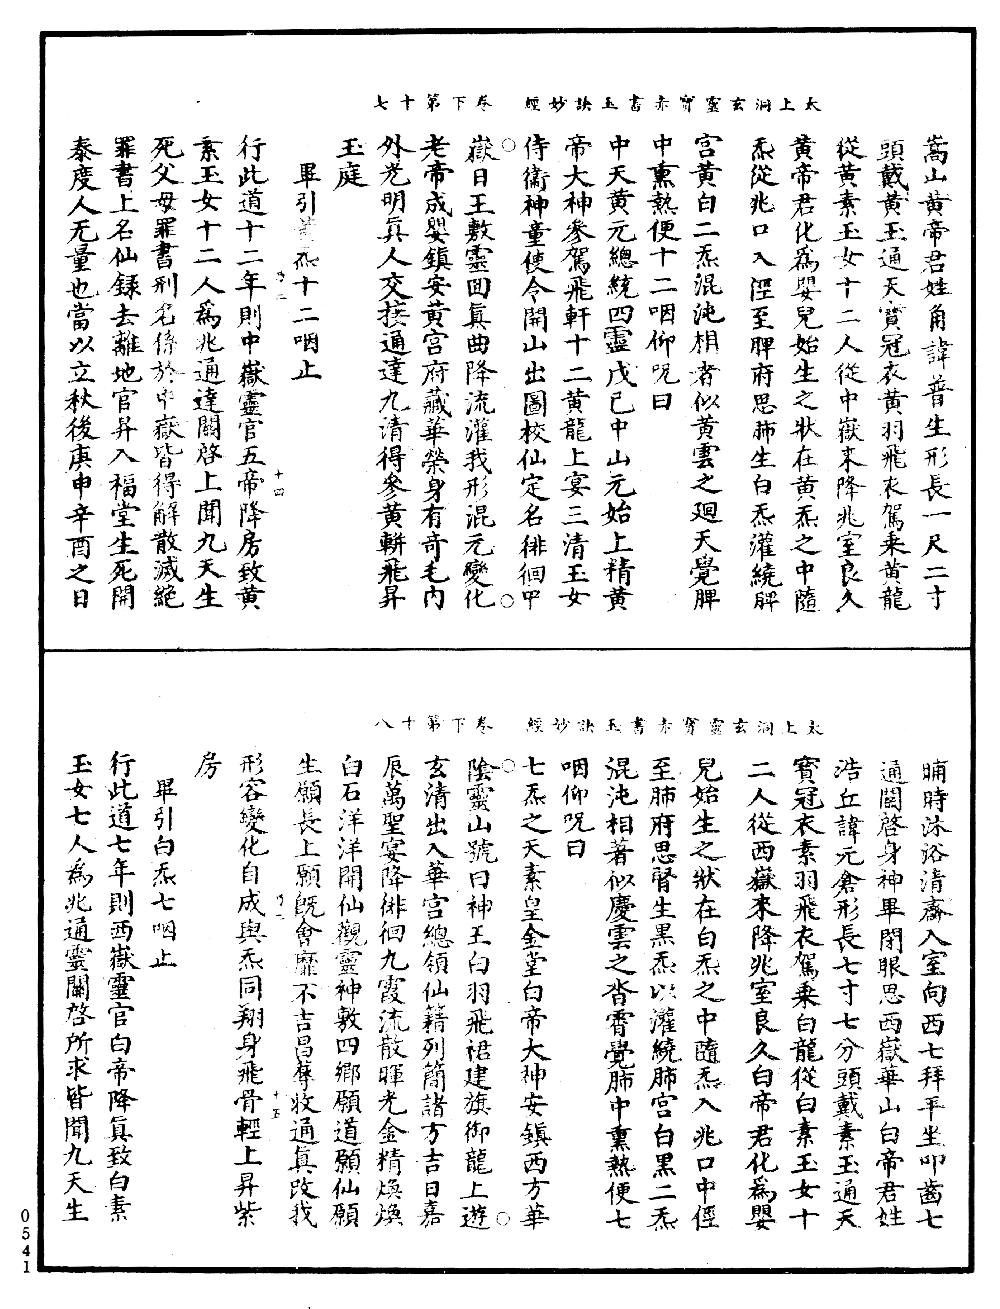 太上洞玄靈寶赤書玉訣妙經　卷下第十七
嵩山黃帝君姓角諱普生形長一尺二寸
頭戴黃玉通天寶冠衣黃羽飛衣駕乘黃龍
從黃素玉女十二人從中嶽來降兆室良久
黃帝君化為嬰兒始生之狀在黃炁之中隨
炁從兆口入逕至脾府思肺生白炁灌繞脾
宮黃白二炁混沌相著似黃雲之廻天覺脾
中熏熱便十二咽仰呪曰
中天黃元總統四靈戊己中山元始上精黃
帝大神參駕飛軒十二黃龍上宴三清玉女
侍衞神童使令開山出圖校仙定名徘徊甲
嶽日王敷靈回眞曲降流灌我形混元變化
老帝成嬰鎮安黃宮府藏華榮身有奇毛內
外光明眞人交接通達九清得參黃軿飛昇
玉庭
畢引黃炁十二咽止
行此道十二年則中嶽靈官五帝降房致黃
素玉女十二人為兆通達關啓上聞九天生
死父母罪書刑名係於中嶽皆得解散滅絕
罪書上名仙錄去離地官昇入福堂生死開
泰度人无量也當以立秋後庚申辛酉之日
十四
太上洞玄靈寶赤書玉訣妙經　卷下第十八
晡時沐浴清齋入室向西七拜平坐叩齒七
通關啓身神畢閉眼思西嶽華山白帝君姓
浩丘諱元倉形長七寸七分頭戴素玉通天
寶冠衣素羽飛衣駕乘白龍從白素玉女十
二人從西嶽來降兆室良久白帝君化為嬰
兒始生之狀在白炁之中隨炁入兆口中徑
至肺府思腎生黑炁以灌繞肺宮白黑二炁
混沌相著似慶雲之沓霄覺肺中熏熱便七
咽仰呪曰
七炁之天素皇金堂白帝大神安鎮西方華
陰靈山號曰神王白羽飛裙建旗御龍上遊
玄清出入華宮總領仙籍列簡諸方吉日嘉
辰萬聖宴降徘徊九霞流散暉光金精煥煥
白石洋洋開仙觀靈神敷四鄉願道願仙願
生願長上願旣會靡不吉昌蓐收通眞改我
形容變化自成與炁同翔身飛骨輕上昇紫
房
畢引白炁七咽止
行此道七年則西嶽靈官白帝降眞致白素
玉女七人為兆通靈關啓所求皆聞九天生
十五
0541